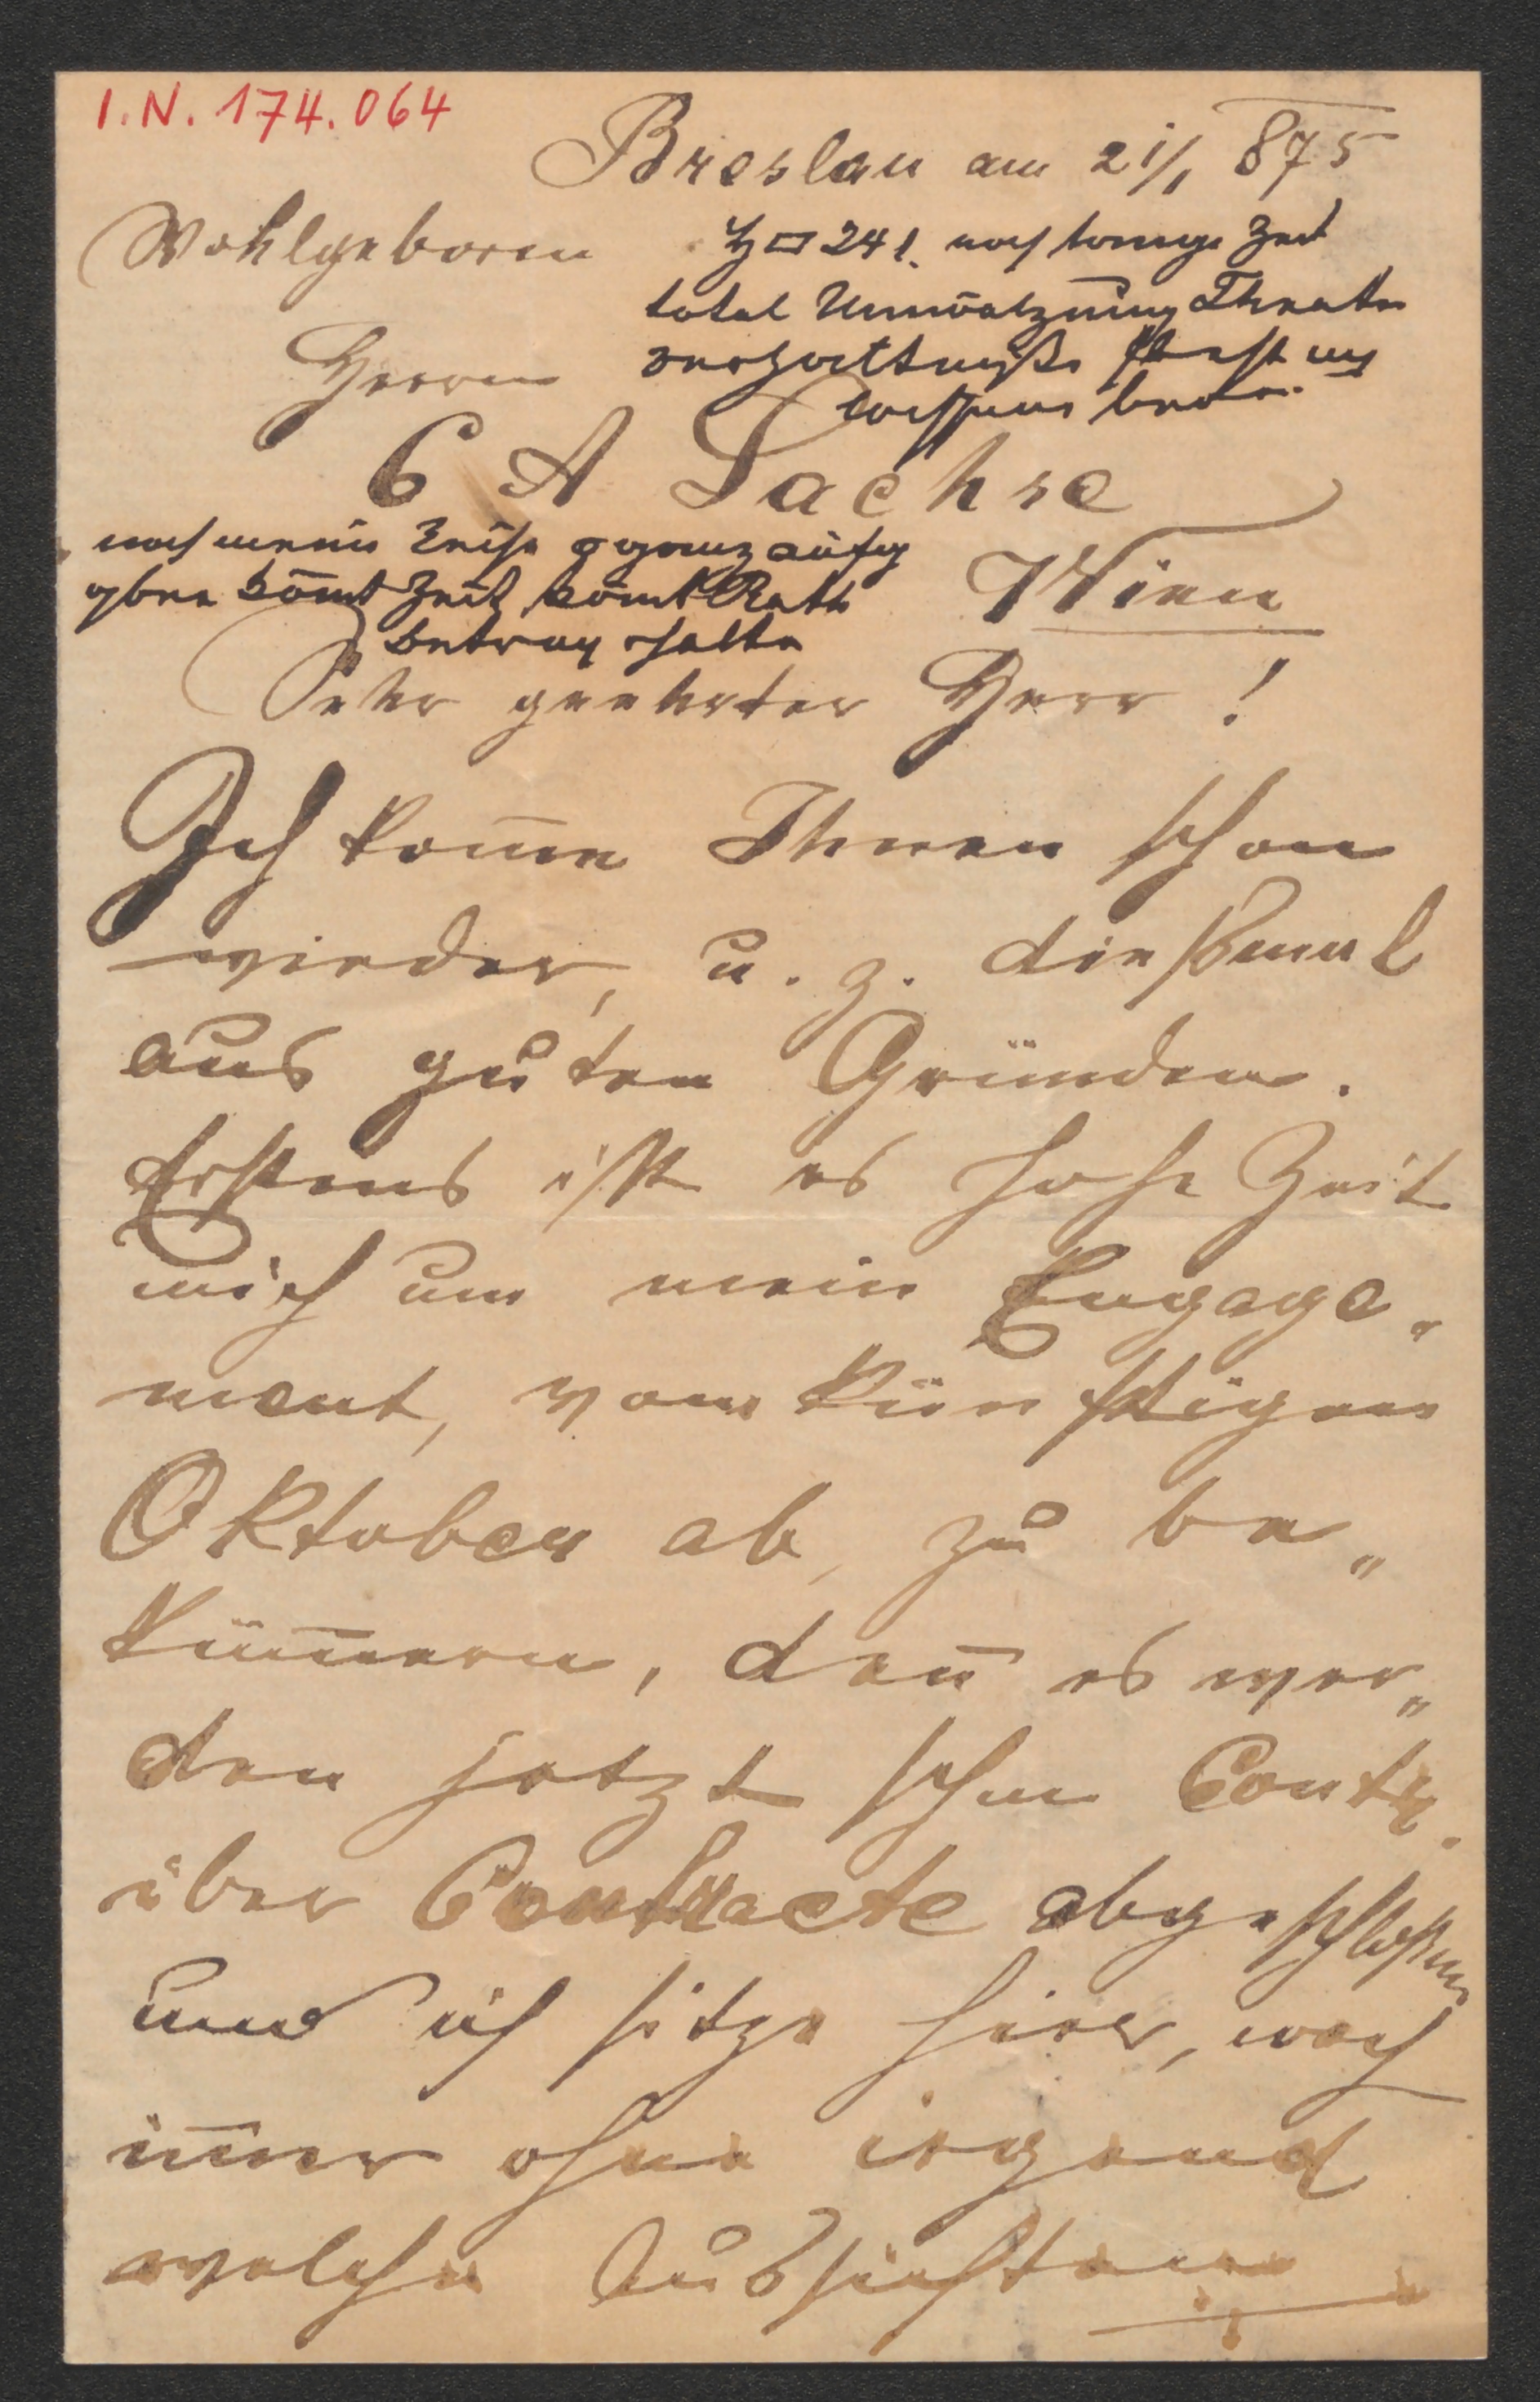 I.N. 174.064
Breslau am 21/1 875
Wohlgeboren
24/1. noch lange Zeit
total Umwälzung Theater
verhältniße
Herrn
C A Sachse
noch meine Reise ganz aufge
geben kom̄t Zeit kom̄t Rath
Betrag halte
Wien
Sehr geehrter Herr!
Ich kom̄e Ihnen schon
wieder, u. z. dießmal
aus guten Gründen.
Erstens ist es hohe Zeit
mich um mein Engage„
ment, vom künftigen
Oktober ab, zu be„
küm̄ern, den̄ es wer„
den jetzt schon Contr.
über Contracte abgeschloßen
und ich sitze hier, noch
im̄er ohne irgend
welche Aussichten